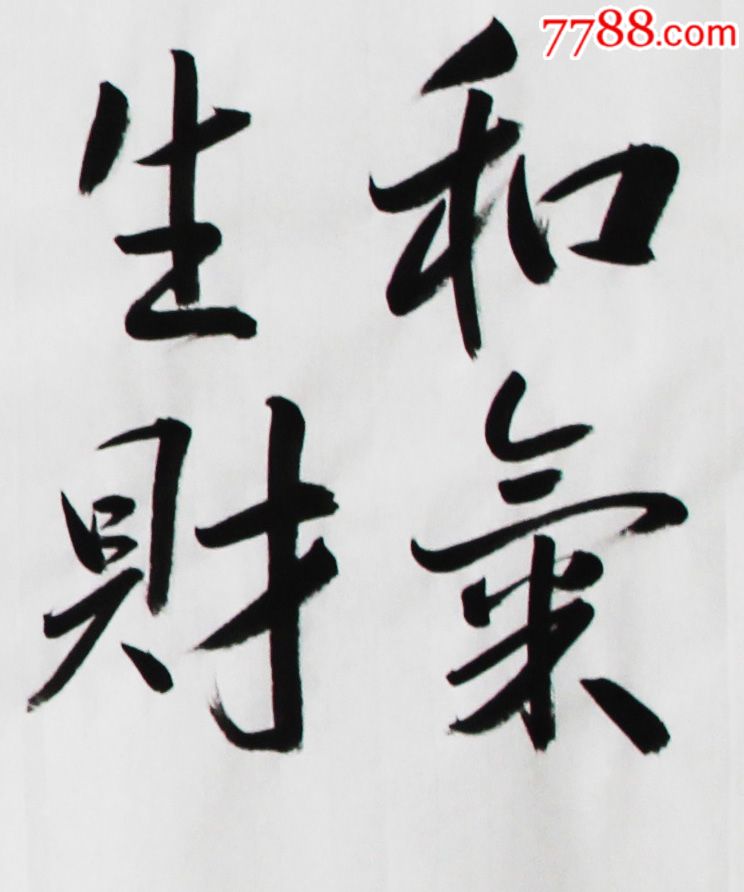 和氣
生財
7788.com